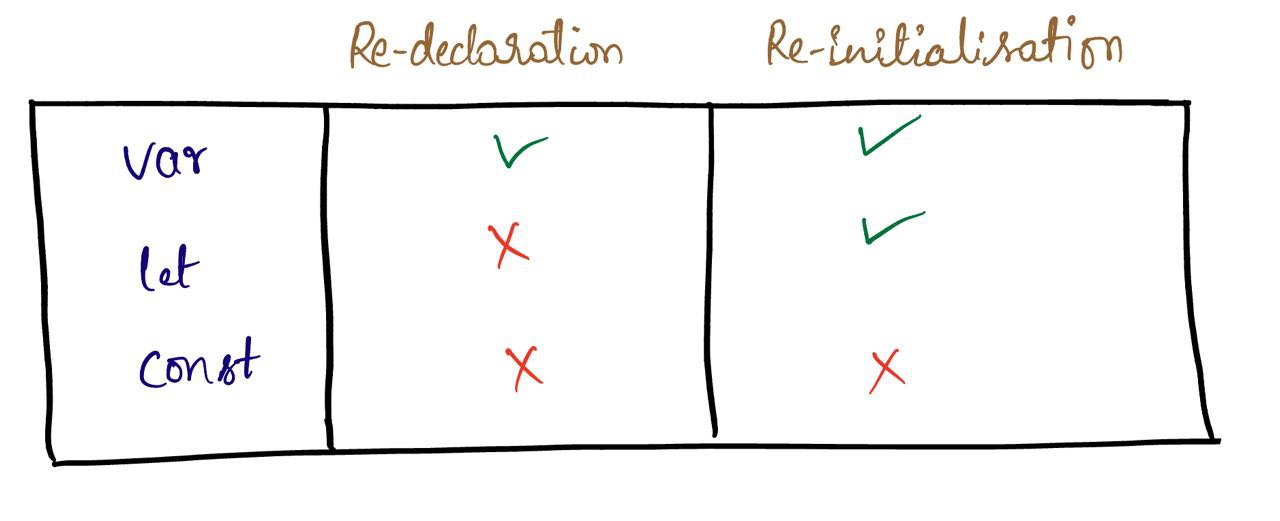 Re-declaration Re-initialisation
var ✓ ✓
let ✗ ✓
const ✗ ✗